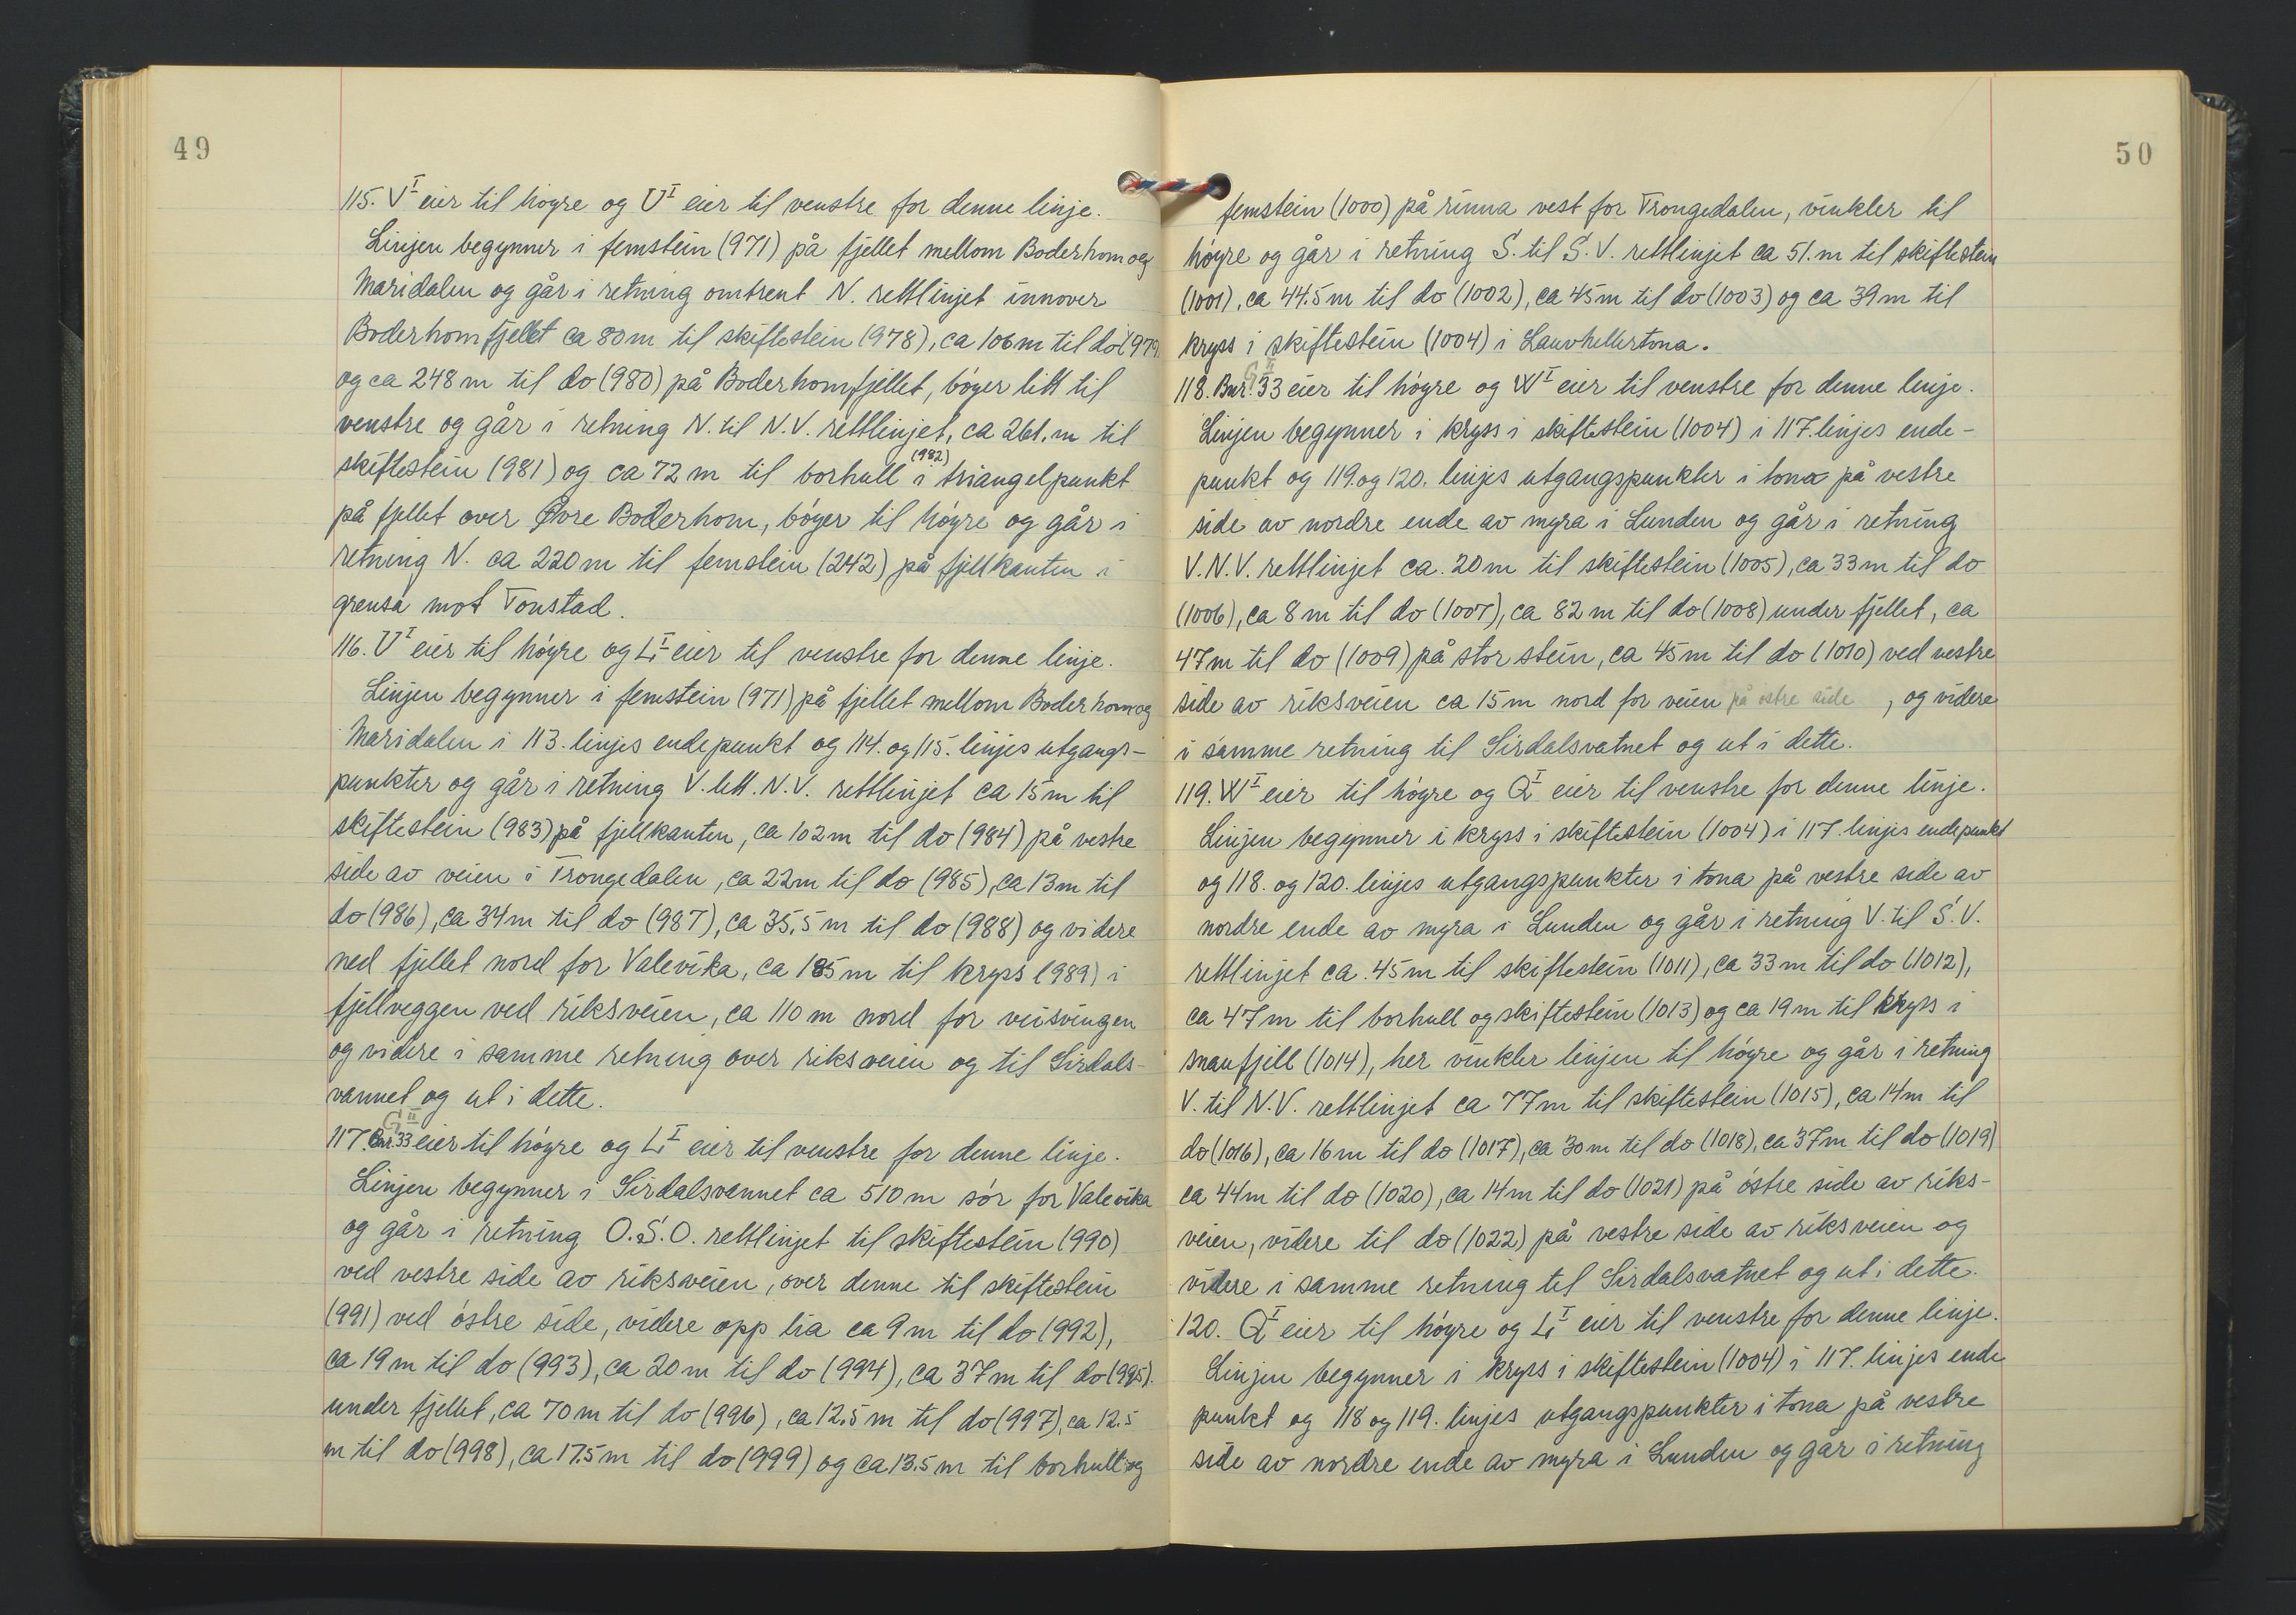 49
115. V^I eier til høyre og U^I eier til venstre for denne linje.
Linjen begynner i femstein (971) på fjellet mellom Boderhom og
Maridalen og går i retning omtrent N. rettlinjet innover
Boderhomfjellet ca 80 m til skiftestein (978), ca 106 m til do (979)
og ca 248 m til do (980) på Boderhomfjellet, bøyer litt til
venstre og går i retning N. til N.V. rettlinjet, ca 261. m til
skiftestein (981) og ca 72 m til borhull (982) i triangelpunkt
på fjellet over Øvre Boderhom, bøyer til høyre og går i
retning N. ca 220 m til femstein (242) på fjellkanten i
grensa mot Tonstad.
116. U^I eier til høyre og Li^I eier til venstre for denne linje.
Linjen begynner i femstein (971) på fjellet mellom Boderhom og
Maridalen i 113. linjes endepunkt og 114. og 115. linjes utgangs-
punkter og går i retning V. litt. N.V. rettlinjet ca 15 m til
skiftestein (983) på fjellkanten, ca 102 m til do (984) på vestre
side av veien i Trongedalen, ca 22 m til do (985), ca 13 m til
do (986), ca 34 m til do (987), ca 35,5 m til do (988) og videre
ned fjellet nord for Valevika, ca 185 m til kryss (989) i
fjellveggen ved riksveien, ca 110 m nord for veisvingen
og videre i samme retning over riksveien og til Sirdals-
vannet og ut i dette.
G^II
117. Bnr. 33 eier til høyre og Li^I eier til venstre for denne linje.
Linjen begynner i Sirdalsvannet ca 510 m sør for Valevika
og går i retning O.S.O. rettlinjet til skiftestein (990)
ved vestre side av riksveien, over denne til skiftestein
(991) ved østre side, videre opp lia ca 9 m til do (992),
ca 19 m til do (993), ca 20 m til do (994), ca 37 m til do (995).
under fjellet, ca 70 m til do (996), ca 12.5 m til do (997), ca 12.5
m til do (998), ca 17.5 m til do (999) og ca 13.5 m til borhull og
50
femstein (1000) på rinna vest for Trongedalen, vinkler til
høyre og går i retning S. til S.V. rettlinjet ca 51. m til skiftestein
(1001), ca 44.5 m til do (1002), ca 45 m til do (1003) og ca 39 m til
kryss i skiftestein (1004) i Lauvhellertona.
G^II
118. Bnr. 33 eier til høyre og W^I eier til venstre for denne linje.
Linjen begynner i kryss i skiftestein (1004) i 117. linjes ende-
punkt og 119. og 120. linjes utgangspunkter i tona på vestre
side av nordre ende av myra i Lunden og går i retning
V.N.V. rettlinjet ca. 20 m til skiftestein (1005), ca 33 m til do
(1006), ca 8 m til do (1007), ca 82 m til do (1008) under fjellet, ca
47 m til do (1009) på stor stein, ca 45 m til do (1010) ved vestre
side av riksveien ca 15 m nord for veien på østre side , og videre
i samme retning til Sirdalsvatnet og ut i dette.
119. W^I eier til høyre og Q^I eier til venstre for denne linje.
Linjen begynner i kryss i skiftestein (1004) i 117. linjes endepunkt
og 118. og 120. linjes utgangspunkter i tona på vestre side av
nordre ende av myra i Lunden og går i retning V. til S.V.
rettlinjet ca. 45 m til skiftestein (1011), ca 33 m til do (1012),
ca 47 m til borhull og skiftestein (1013) og ca 19 m til kryss i
snaufjell (1014), her vinkler linjen til høyre og går i retning
V. til N.V. rettlinjet ca 77 m til skiftestein (1015), ca 14 m til
do (1016), ca 16 m til do (1017), ca 30 m til do (1018), ca 37 m til do (1019)
ca 44 m til do (1020), ca 14 m til do (1021) på østre side av riks-
veien, videre til do (1022) på vestre side av riksveien og
videre i samme retning til Sirdalsvatnet og ut i dette.
120. Q^I eier til høyre og Li^I eier til venstre for denne linje.
Linjen begynner i kryss i skiftestein (1004) i 117. linjes ende
punkt og 118 og 119. linjes utgangspunkter i tona på vestre
side av nordre ende av myra i Lunden og går i retning